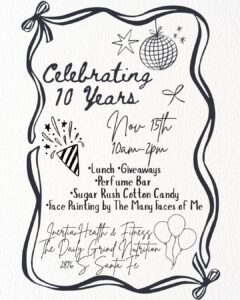 Celebrating
10 Years
Nov 15th
10am-2pm
•Lunch •Giveaways
•Perfume Bar
•Sugar Rush Cotton Candy
•Face Painting by The Many Faces of Me
Inertia Health & Fitness
The Daily Grind Nutrition
2876 S Santa Fe